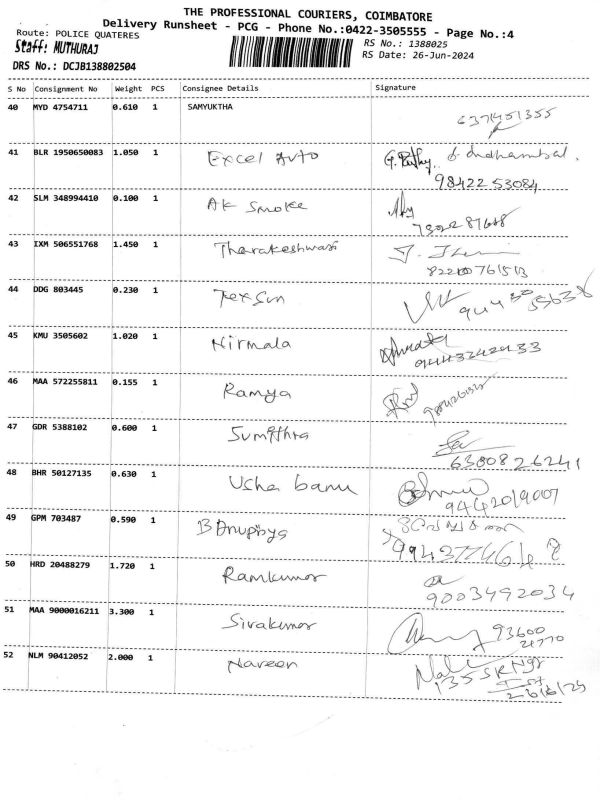 THE PROFESSIONAL COURIERS, COIMBATORE
Delivery Runsheet - PCG - Phone No.:0422-3505555 - Page No.:4
Route: POLICE QUATERES
RS No.: 1388025
Staff: MUTHURAJ
RS Date: 26-Jun-2024
DRS No.: DCJB138802504
S No Consignment No Weight PCS Consignee Details Signature
40 MYD 4754711 0.610 1 SAMYUKTHA
6374451355
41 BLR 1950650083 1.050 1 Excel Auto
98422 53084
42 SLM 348994410 0.100 1 AK Smoke
43 IXM 506551768 1.450 1 Tharakeshwari
44 DDG 803445 0.230 1 Tex Sun
45 KMU 3505602 1.020 1 Nirmala
9443242933
46 MAA 572255811 0.155 1 Ramya
47 GDR 5388102 0.600 1 Sumithra
6380826241
48 BHR 50127135 0.630 1 Usha banu
9442019007
49 GPM 703487 0.590 1
50 HRD 20488279 1.720 1 Ramkumar
9003492034
51 MAA 9000016211 3.300 1 Sivakumar
93600
21770
52 NLM 90412052 2.000 1 Naveen
135 SR Ngr
26/6/24